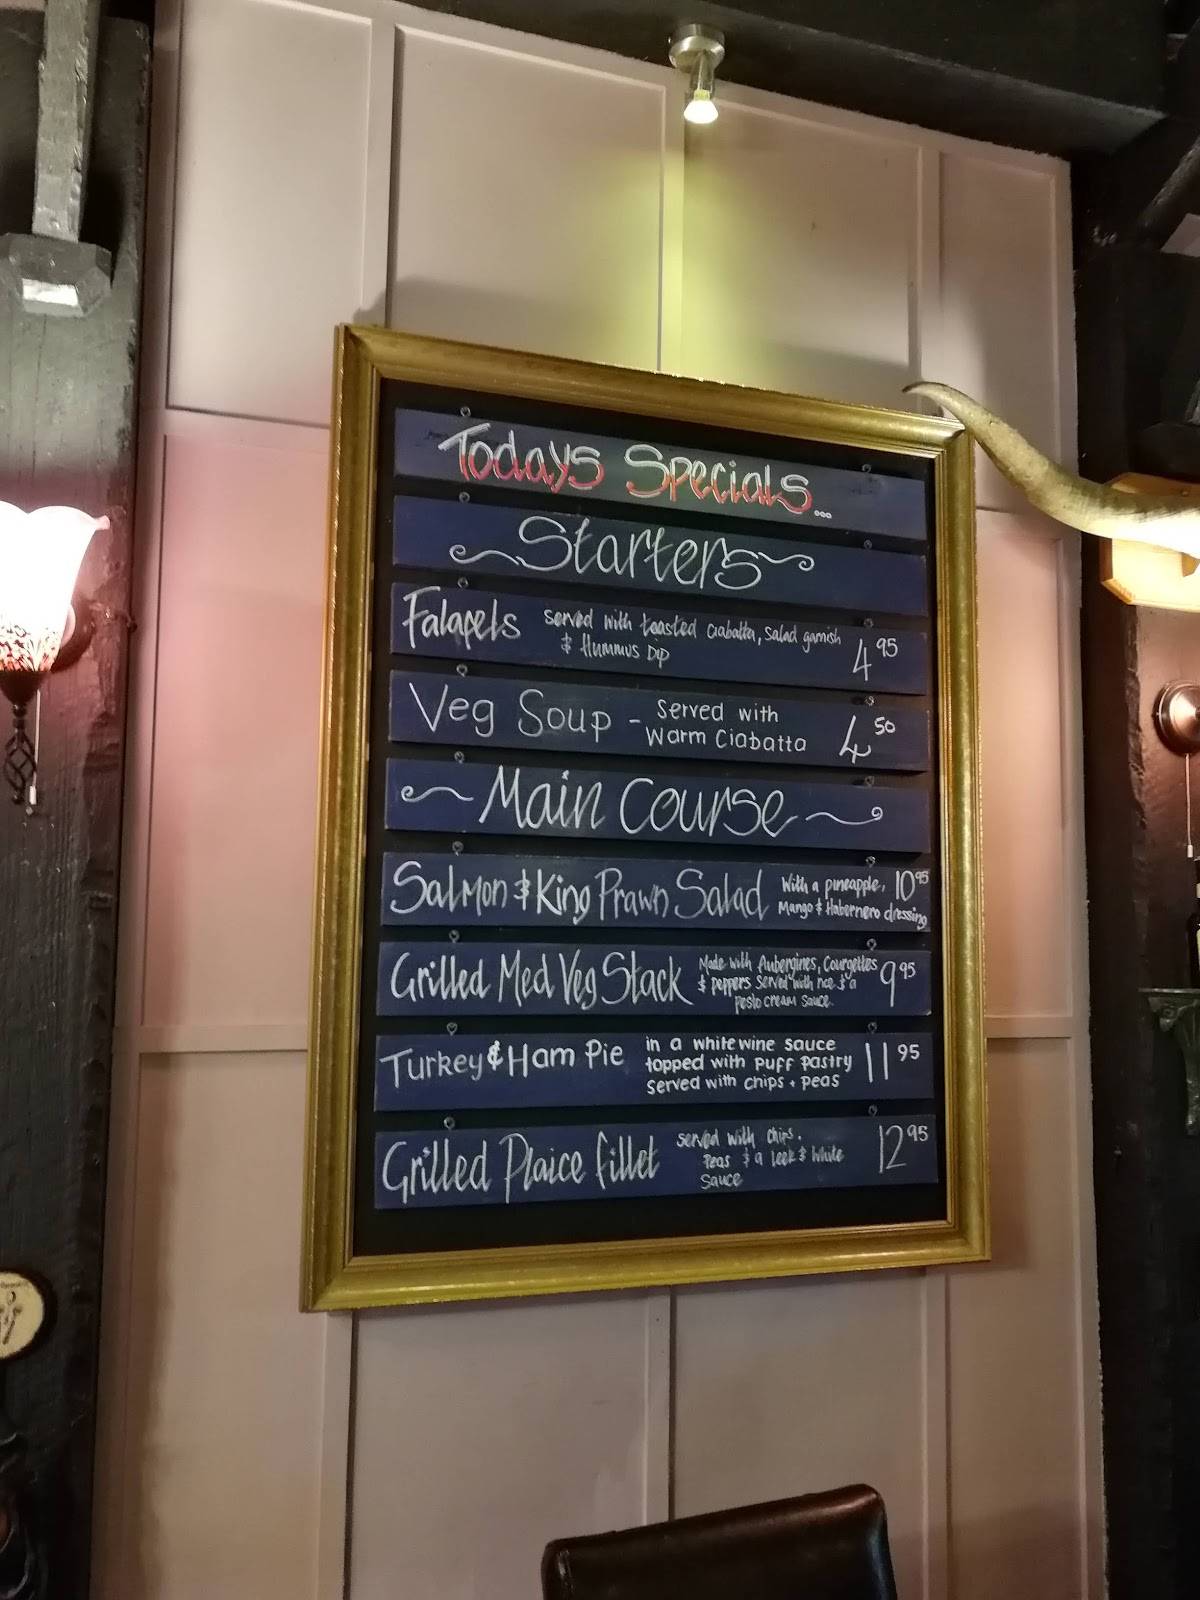 Todays Specials...
Starters
Falafels served with toasted ciabatta, salad garnish
& Hummus Dip 4 95
Veg Soup - Served with
Warm Ciabatta 4 50
Main Course
Salmon & King Prawn Salad With a pineapple, 10 95
Mango & Habernero dressing
Grilled Med Veg Stack Made with Aubergines, Courgettes 9 95
& peppers served with rice & a
pesto cream sauce.
Turkey & Ham Pie in a white wine sauce
topped with puff pastry 11 95
served with chips + peas
Grilled Plaice fillet served with chips, 12 95
Peas & a leek & white
sauce